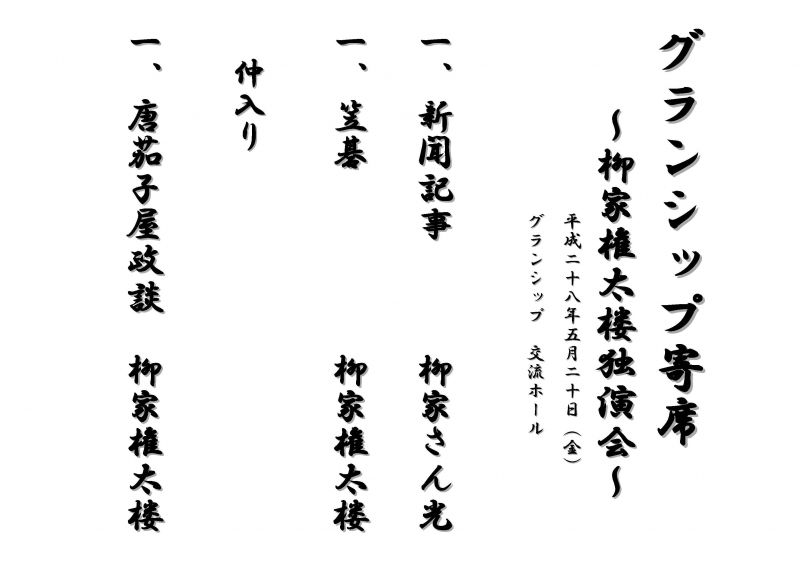 グランシップ寄席
~柳家権太楼独演会~
平成二十八年五月二十日(金)
グランシップ 交流ホール
一、新聞記事 柳家さん光
一、笠碁 柳家権太楼
仲入り
一、唐茄子屋政談 柳家権太楼